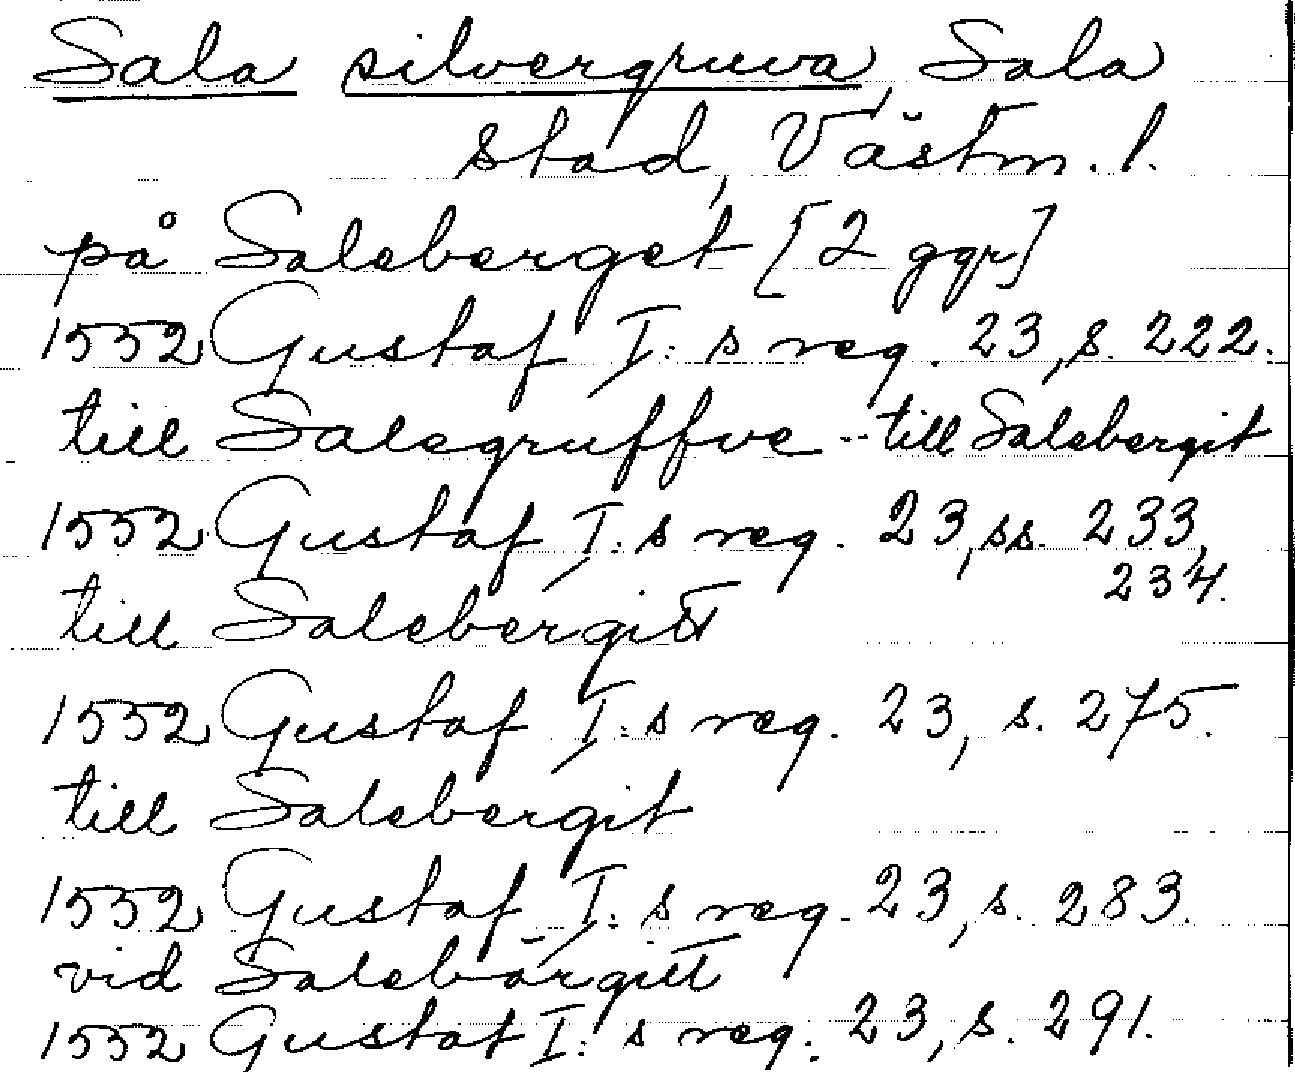 Sala silvergruva, Sala
stad, Västm. l.
på Saleberget [2 ggr]
1552 Gustaf I:s reg. 23, s. 222.
till Salegruffve -- till Salebergit
1552 Gustaf I:s reg. 23, ss. 233,
234.
till Salebergitt
1552 Gustaf I:s reg. 23, s. 275.
till Salebergit
1552 Gustaf I:s reg. 23, s. 283.
vid Salebärgitt
1552 Gustaf I:s reg. 23, s. 291.